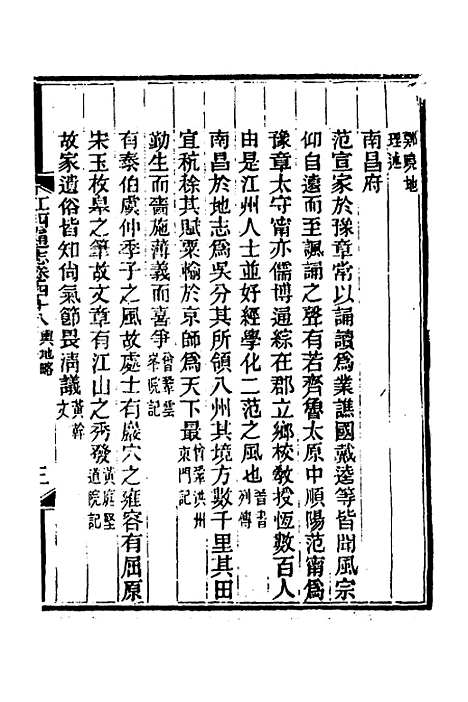 鄭曉地
理述
南昌府
范宣家於豫章常以誦讀爲業譙國戴逵等皆聞風宗
仰自遠而至諷誦之聲有若齊魯太原中順陽范甯爲
豫章太守甯亦儒博通綜在郡立鄉校敎授恆數百人
由是江州人士並好經學化二范之風也晉書列傳
南昌於地志爲吳分其所領八州其境方數千里其田
宜秔稌其賦粟輸於京師爲天下最曾鞏洪州東門記
勤生而嗇施薄義而喜爭曾鞏雲峯院記
有泰伯虞仲季子之風故處士有巖穴之雍容有屈原
宋玉枚皋之筆故文章有江山之秀發黃庭堅道院記
故家遺俗皆知尙氣節畏淸議黃幹文
江西通志卷四十八 輿地略 三